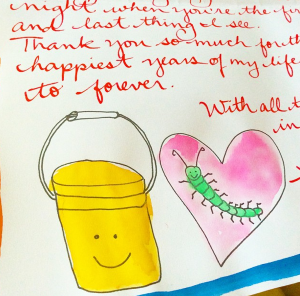 night when you're the fi
and last thing I see.
Thank you so much for th
happiest years of my life
to forever.
With all t
in